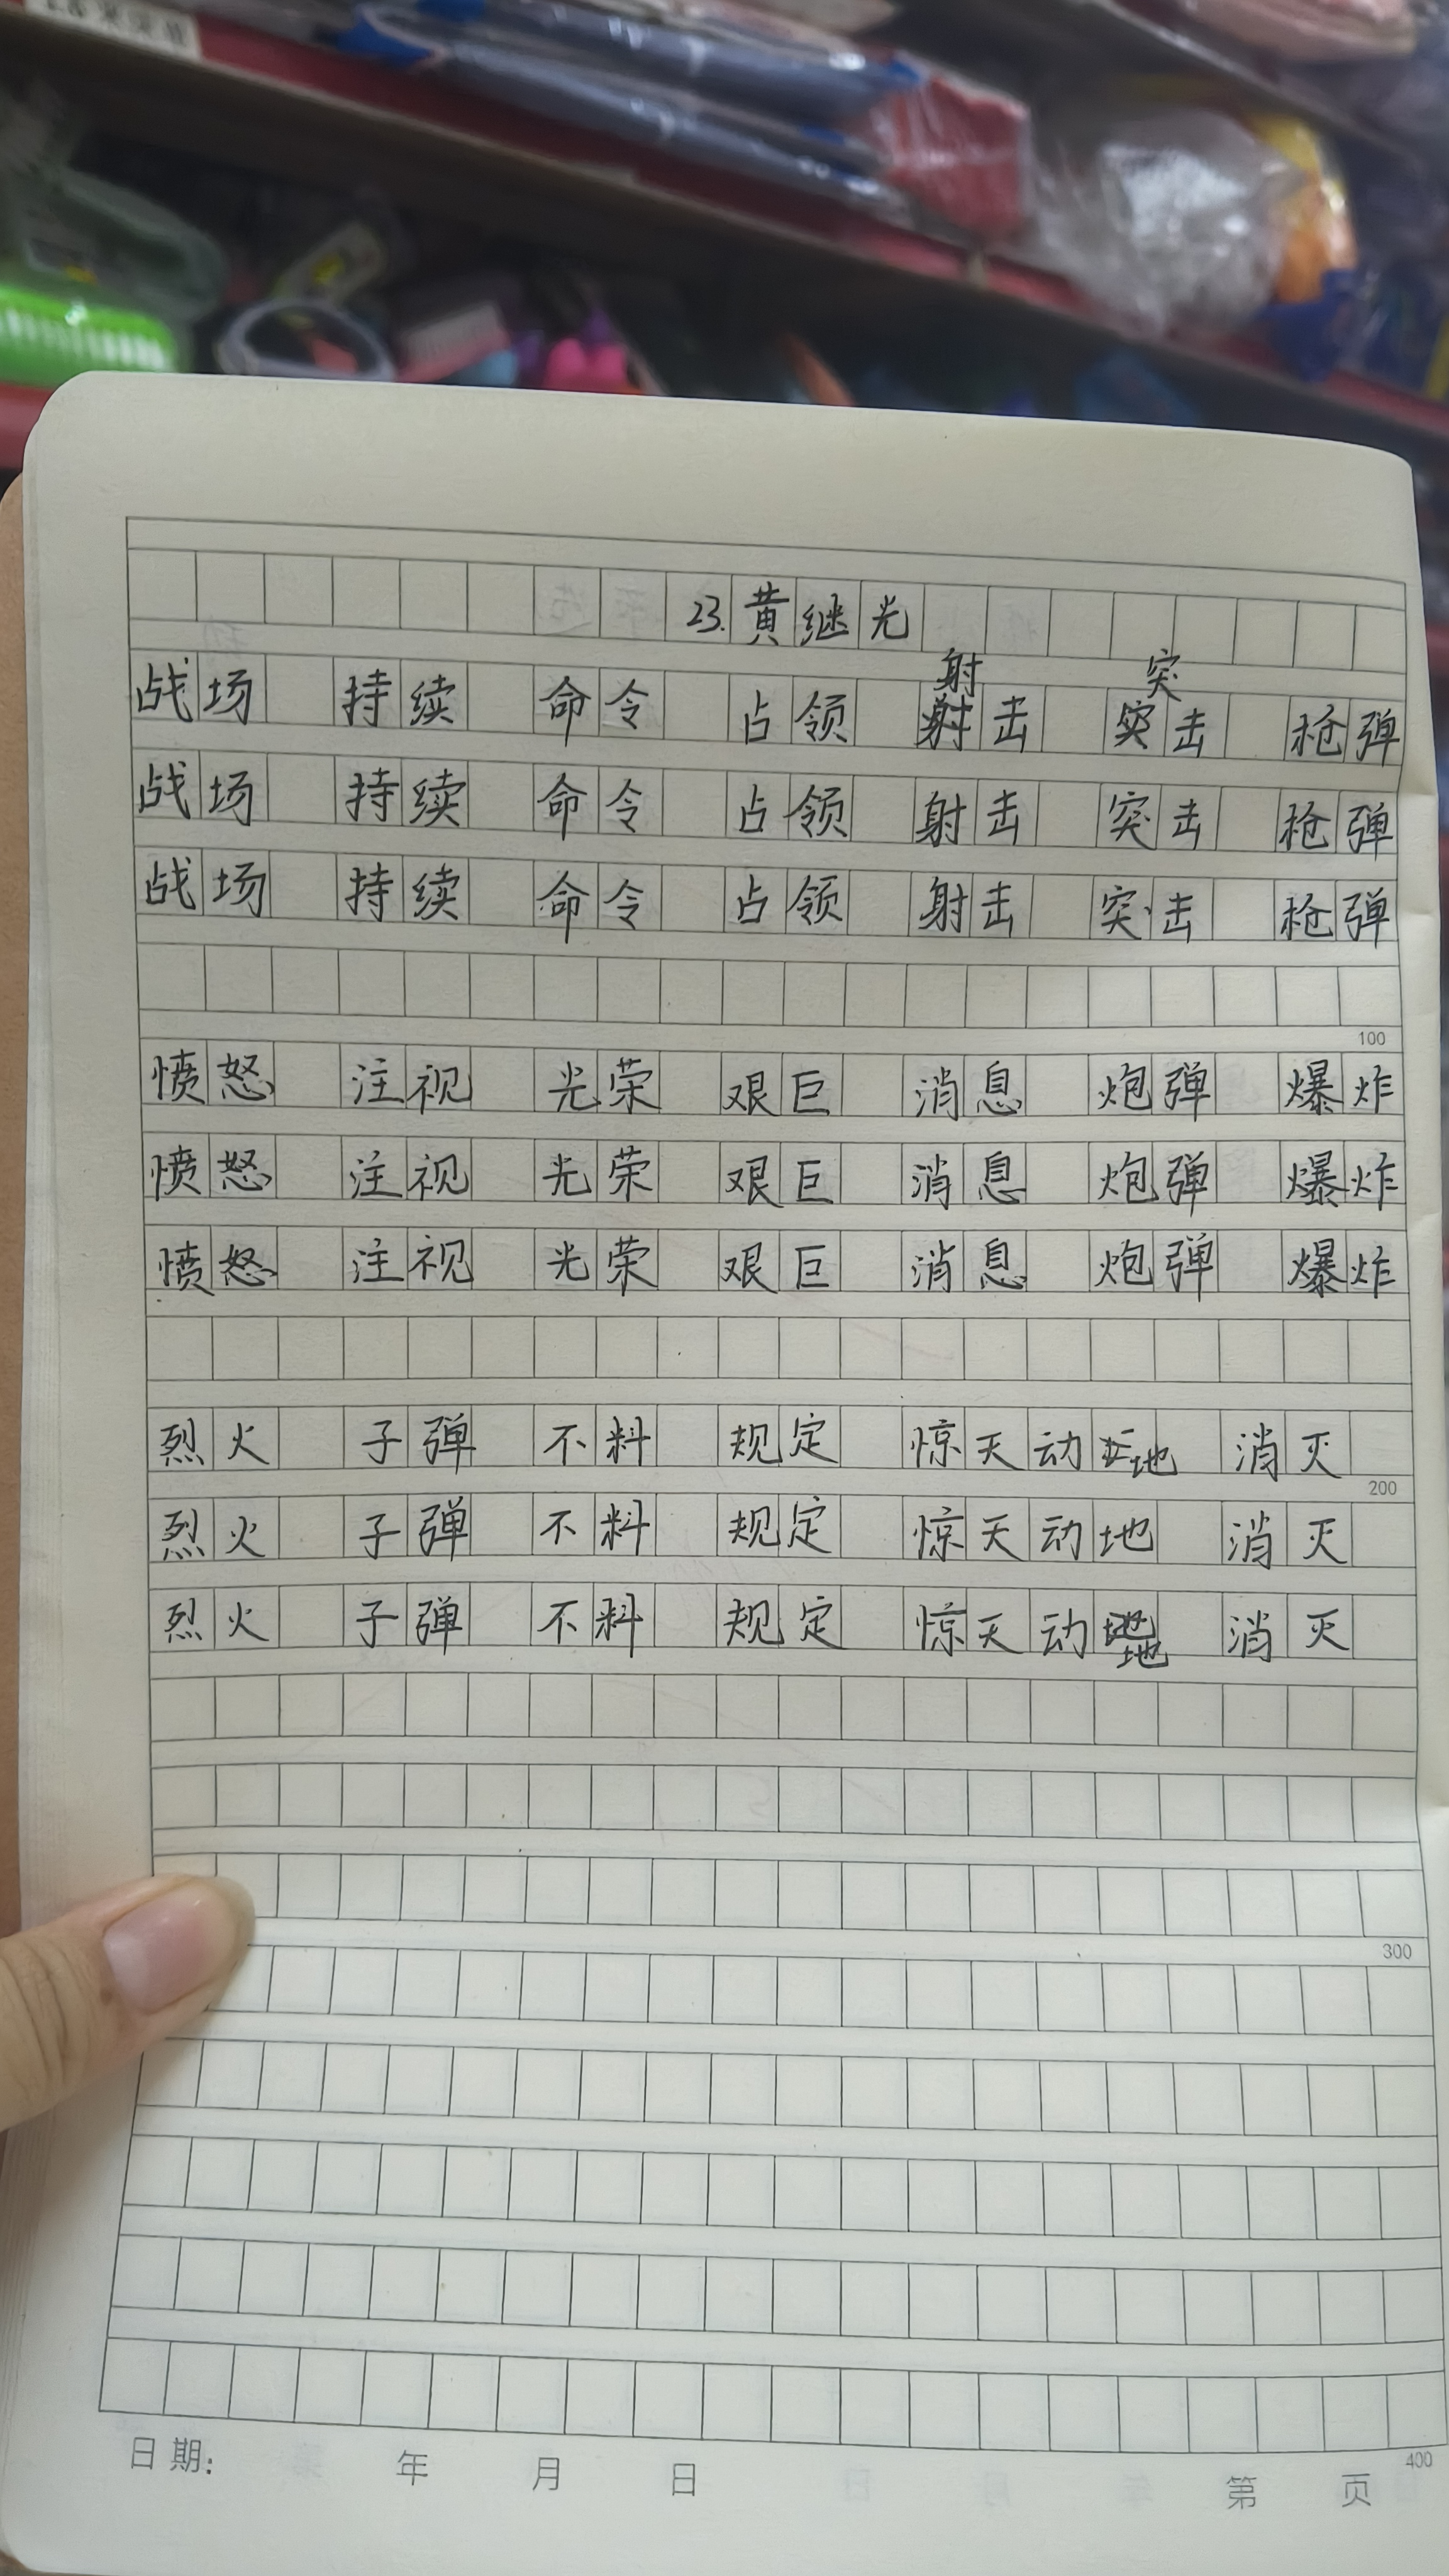 23.黄继光
射 突
战场 持续 命令 占领 射击 突击 枪弹
战场 持续 命令 占领 射击 突击 枪弹
战场 持续 命令 占领 射击 突击 枪弹
100
愤怒 注视 光荣 艰巨 消息 炮弹 爆炸
愤怒 注视 光荣 艰巨 消息 炮弹 爆炸
愤怒 注视 光荣 艰巨 消息 炮弹 爆炸
烈火 子弹 不料 规定 惊天动地 消灭
200
烈火 子弹 不料 规定 惊天动地 消灭
烈火 子弹 不料 规定 惊天动地 消灭
300
400
日期: 年 月 日 第 页